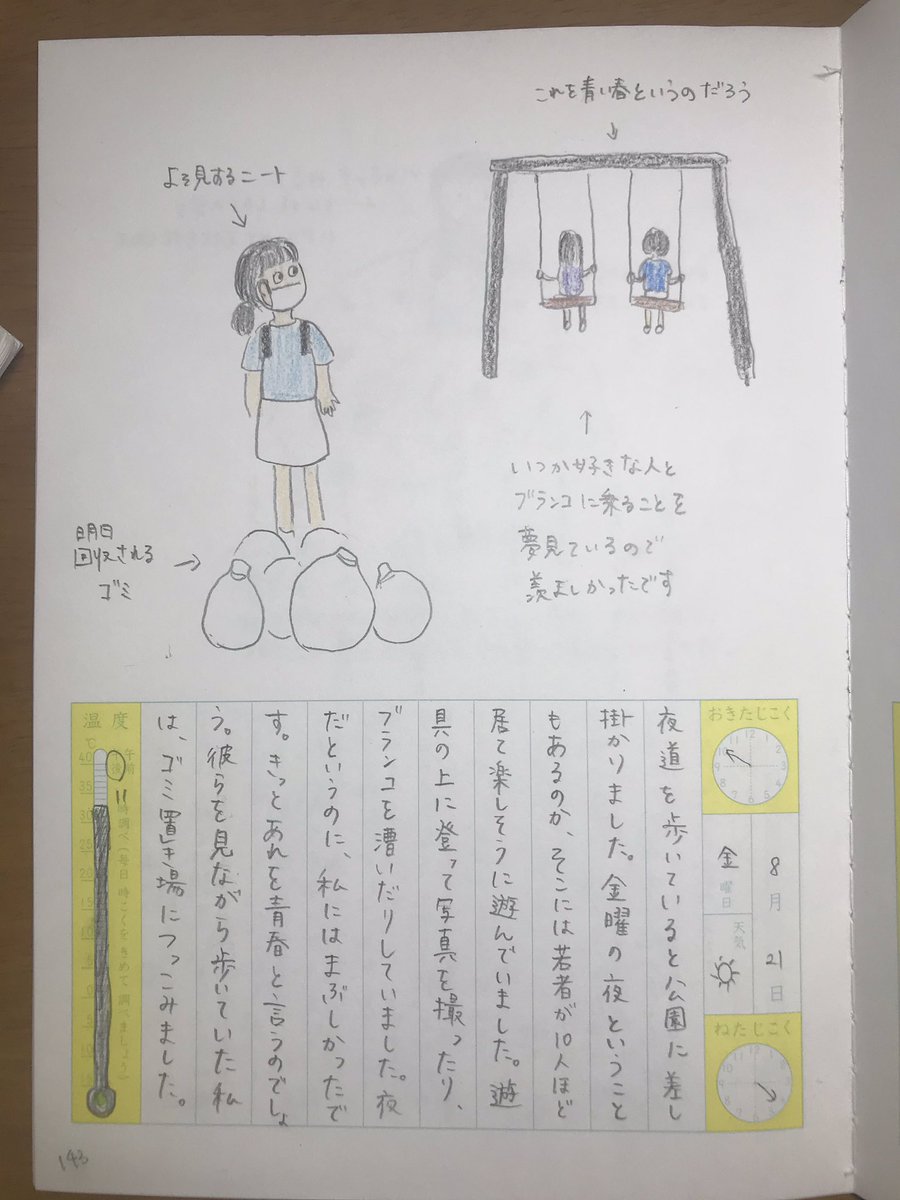 これを青い春というのだろう
よそ見するニート
いつか好きな人と
ブランコに乗ることを
夢見ているので
羨ましかったです
明日
回収される
ゴミ
おきたじこく
8月21日
金曜日
天気
ねたじこく
夜道を歩いていると公園に差し
掛かりました。金曜の夜ということ
もあるのか、そこには若者が10人ほど
居て楽しそうに遊んでいました。遊
具の上に登って写真を撮ったり、
ブランコを漕いだりしていました。夜
だというのに、私にはまぶしかったで
す。きっとあれを青春と言うのでしょ
う。彼らを見ながら歩いていた私
は、ゴミ置き場につっこみました。
温度
℃
40
35
30
25
20
15
10
5
0
5
10
午前
後
11
時調べ(毎日時こくをきめて調べましょう)
143